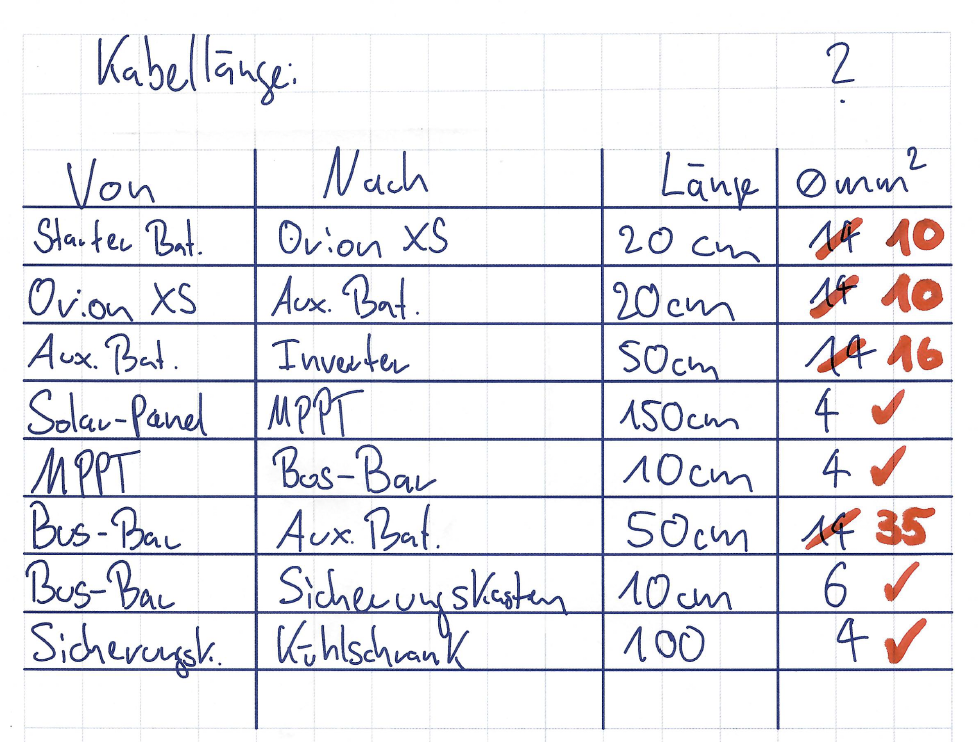 Kabellänge: ?
Von Nach Länge ∅ mm²
Starter Bat. Orion XS 20 cm 14 10
Orion XS Aux. Bat. 20cm 14 10
Aux. Bat. Inverter 50cm 14 16
Solar-Panel MPPT 150cm 4 ✓
MPPT Bus-Bar 10cm 4 ✓
Bus-Bar Aux. Bat. 50cm 14 35
Bus-Bar Sicherungskasten 10cm 6 ✓
Sicherungsk. Kühlschrank 100 4 ✓